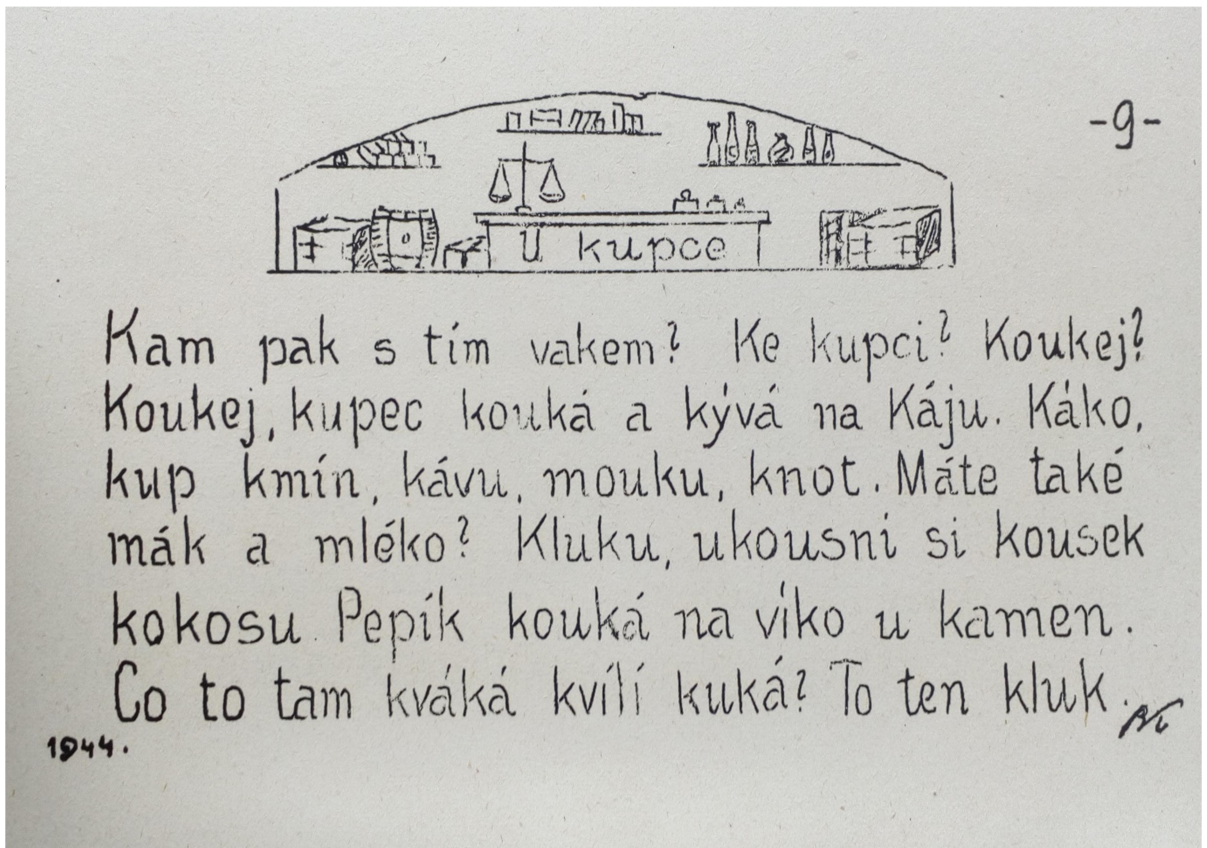 -9-
U kupce
Kam pak s tím vakem? Ke kupci? Koukej?
Koukej, kupec kouká a kývá na Káju. Káko,
kup kmín, kávu, mouku, knot. Máte také
mák a mléko? Kluku, ukousni si kousek
kokosu. Pepík kouká na víko u kamen.
Co to tam kváká kvílí kuká? To ten kluk.
1944.